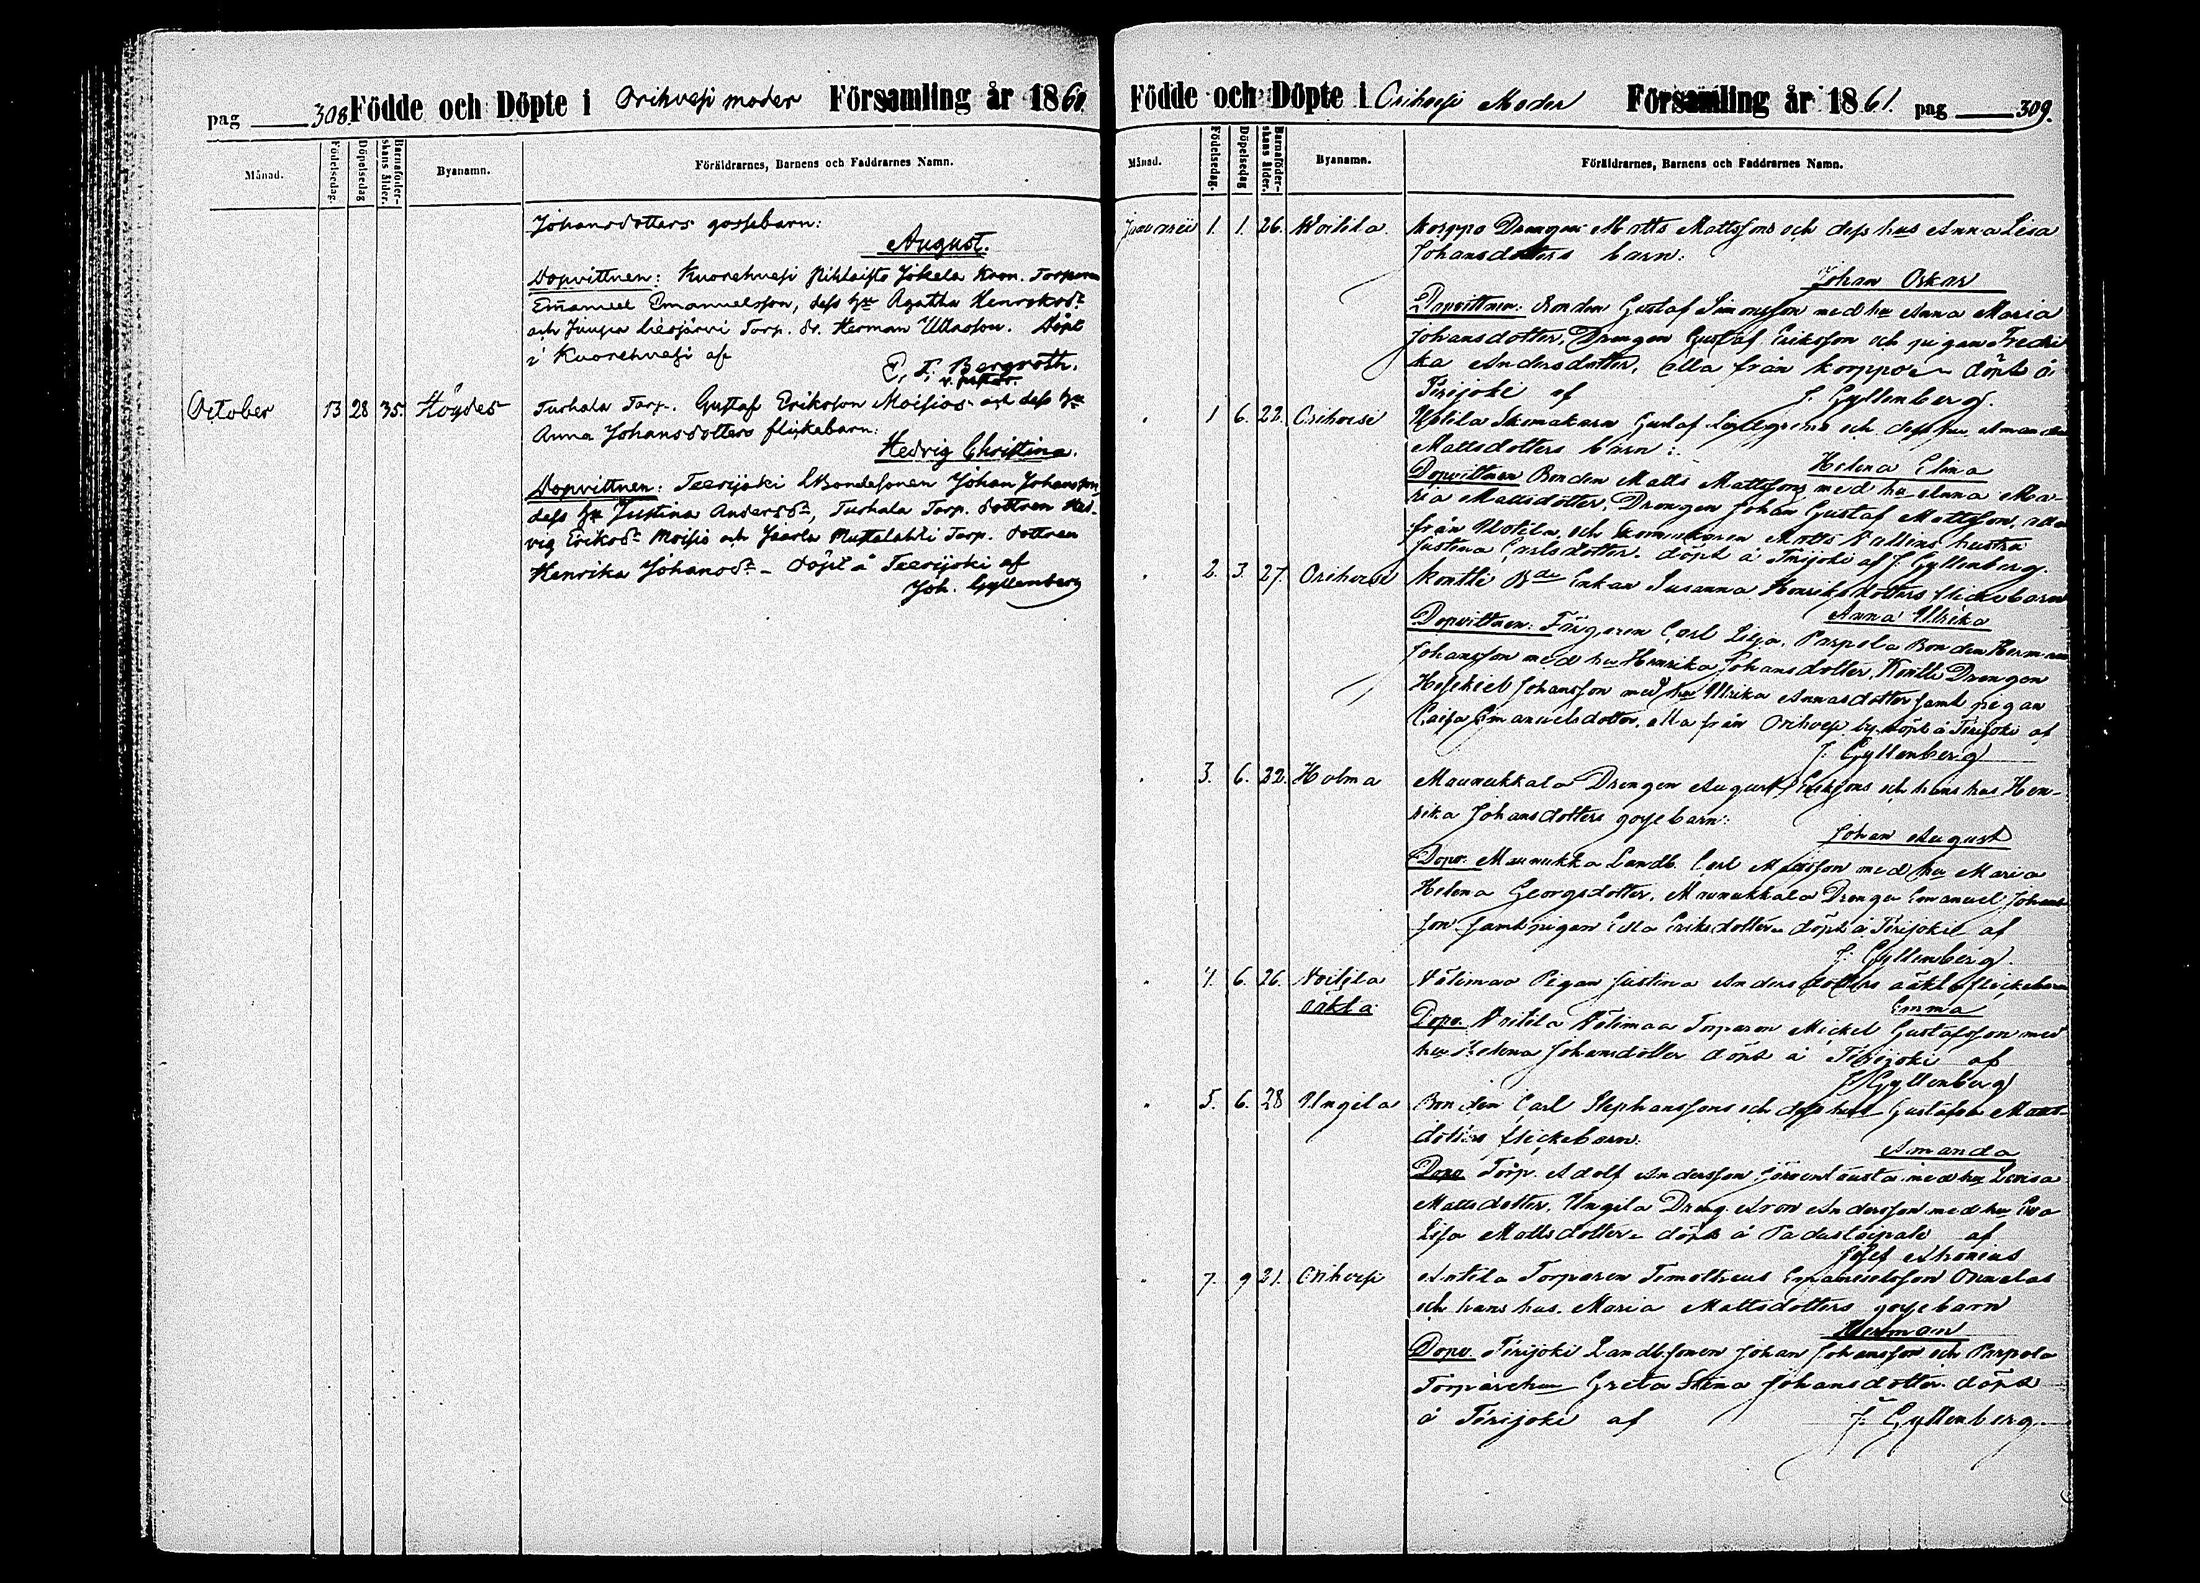 pag 308. Födde och Döpte i Orihvesi moder Församling år 1860.
Månad. Födelsedag. Döpelsedag Barnaföderskans ålder. Byanamn. Föräldrarnes, Barnens och Faddrarnes Namn.
Johansdotters gossebarn:
August.
Dopvittnen: Kuorehvesi Pihlaisto Jokela Kron. Torparen
Emanuel Emanuelsson, dess hu Agatha Henriksdr
och Liesjärvi Torp. dr. Herman Ullasson. döpt
i Kuorehvesi af
E, F, Bergroth.
v. pastor.
October 13 28 35. Höydes Turhala Torp. Gustaf Eriksson Moisios och dess hu
Anna Johansdotters flickebarn:
Hedvig Christina.
Dopvittnen: Teerijoki LBondesonen Johan Johansson,
dess hu Justina Andersdr, Turhala Torp. dottren Hed-
vig Eriksdr Moisio och Jaarla Mustalahti Torp. dottren
Henrika Johansdr - döpt å Teerijoki af
Joh. Gyllenberg
Födde och Döpte i Orihvesi Moder Församling år 1861. pag 309.
Månad. Födelsedag. Döpelsedag Barnaföderskans ålder. Byanamn. Föräldrarnes, Barnens och Faddrarnes Namn.
Januarii 1. 1. 26. Koippo Drengen Matts Mattssons och dess hus Anna Lisa
Johansdotters barn:
Johan Oskar
Dopvittnen: Bonden Gustaf Simonsson med hu Anna Maria
Johansdotter, Drengen Gustaf Eriksson och pigan Fredri
ka Andersdotter, alla från Korppo - döpt å
Tirijoki af J. Gyllenberg.
" 1 6. 22. Orihvesi Uotila Skomakarn Gustaf och dess hu Amanda
Mattsdotters barn:
Helena Elina
Dopvittnen Bonden Matts Mattsson med hu Anna Ma-
ria Mattsdotter, Drengen Johan Gustaf Mattsson, alla
från Uotila, och Skomakaren Matts hustru
Justina Carlsdotter. döpt å Tirijoki af J. Gyllenberg.
" 2. 3. 27. Orihvesi Kontti Bde Enkan Susanna Henriksdotters flickebarn
Anna Ulrika
Dopvittnen: Färgaren Carl Lilja, Parpola Bonden Herman
Johansson med hu Henrika Johansdotter, Kontti Drengen
Hesekiel Johansson med hu Ulrika Annasdotter samt pigan
Caisa Emanuelsdotter, alla från Orihvesi by. döpt å Tirijoki af
J. Gyllenberg
" 3. 6. 22. Holma Maunukkala Drengen August Erikssons och hans hus Hen-
rika Johansdotters gossebarn:
Johan August
Dopv. Maunukka Landb. Carl Mattsson med hu Maria
Helena Georgsdotter, Maunukkala Drengen Emanuel Johans-
son samt pigan Ulla Eriksdotter döpt å Tirijoki af
J. Gyllenberg.
" 4. 6. 26. Voitila
oäkta Välimaa Pigan Justina Andersdotters oäkta flickebarn
Emma
Dopv. Voitila Välimaa Torparen Mickel Gustafsson med
hu Helena Johansdotter döpt å Tirijoki af
J. Gyllenberg
" 5. 6. 28 Ungila Bonden Carl Stephanssons och dess hus Gustafva Matts-
dotters flickebarn:
Amanda
Dopv Torp. Adolf Andersson med hu Lovisa
Mattsdotter, Ungila Dreng. Aron Andersson med hu Eva
Lisa Mattsdotter döpt å Padustaipale af
Josef Ahonius
" 7. 9 21. Orihvesi Antila Torparen Timotheus Emanuelsson
och hans hus. Maria Mattsdotters gossebarn
Herman
Dopv. Tirijoki Landb.sonen Johan Johansson och Parpola
Torpare hu Greta Stina Johansdotter. döpt
å Tirijoki af J. Gyllenberg.